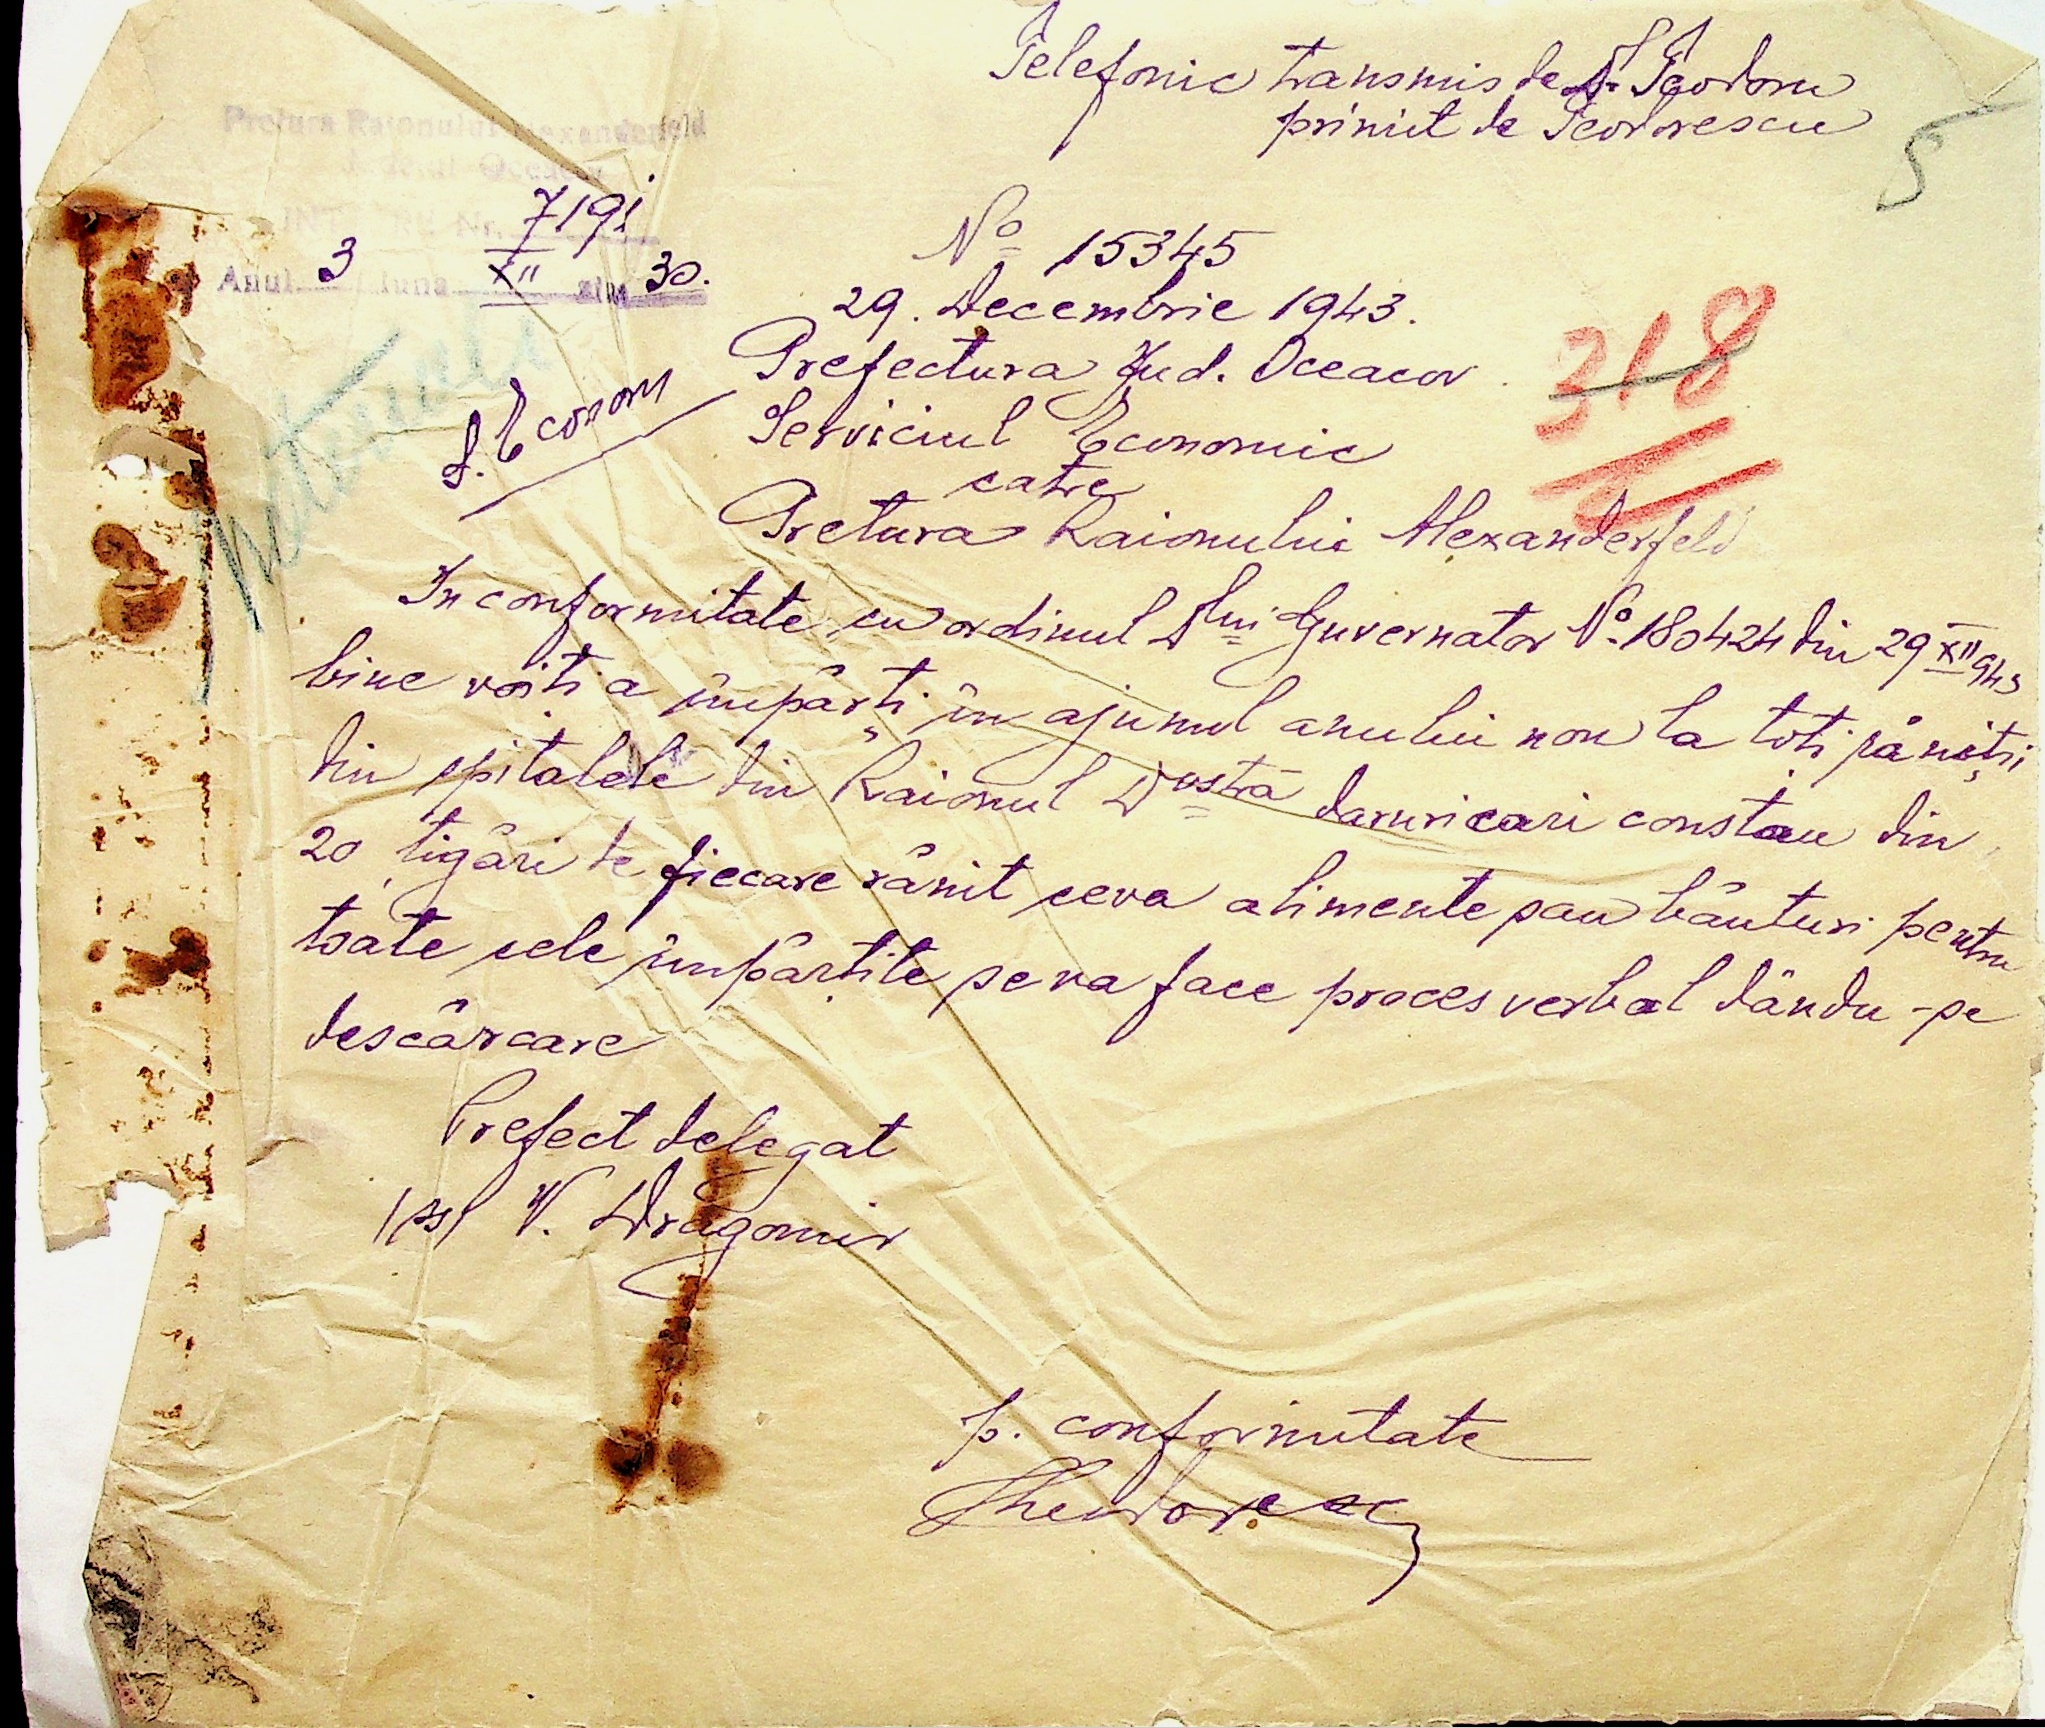 Telefonic transmis de D. Teodoru
primit de Teodorescu
5
Pretura Raionului Alexanderfeld
Judetul Oceacov
INTRARE Nr. 7191
Anul 3 luna XII ziua 30.
No 15345
29. Decembrie 1943.
318
Prefectura Jud. Oceacov
S. Econom
Serviciul Economic
catre
Pretura Raionului Alexanderfeld
In conformitate cu ordinul Dlui Guvernator No 180424 din 29 XII 943
bine voiti a împărți în ajunul anului nou la toti răniții
din spitalele din Raionul Dvstră daruri cari constau din
20 țigări de fiecare rănit ceva alimente sau băuturi pentru
toate cele împărțite se va face proces verbal dându-se
descărcare
Prefect delegat
/ss/ V. Dragomir
p. conformitate
Theodorescu